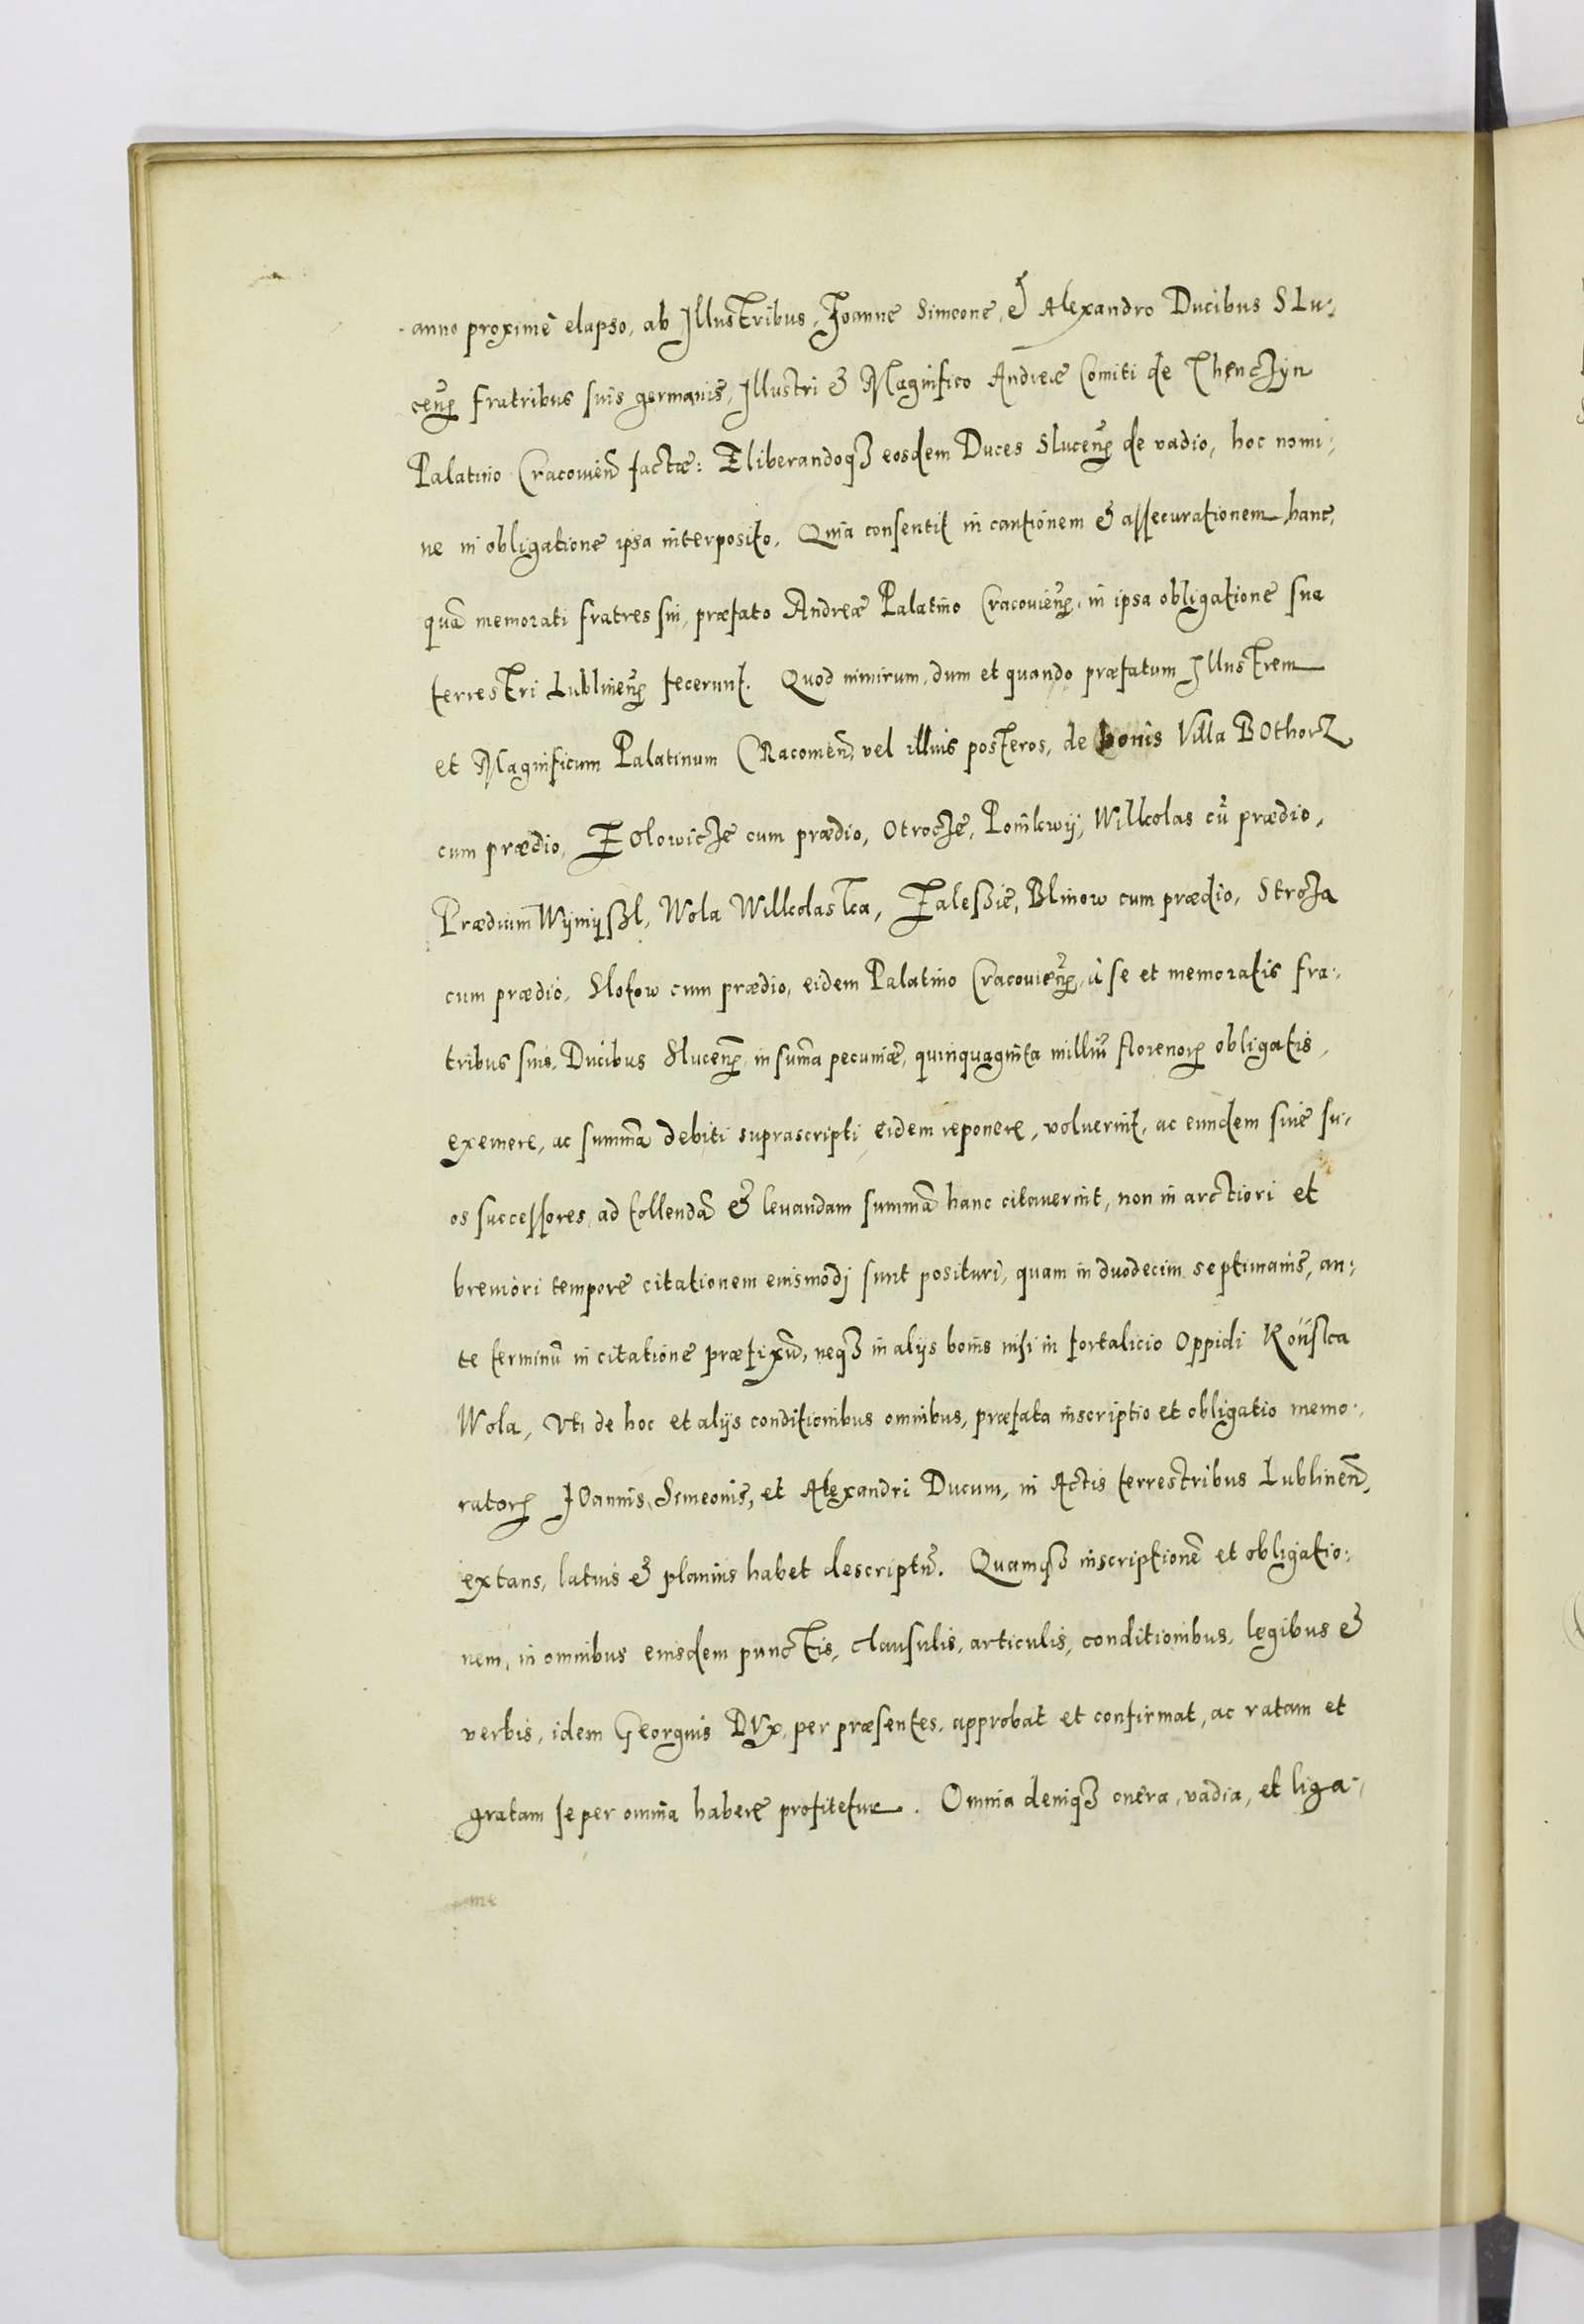 anno proximè elapso, ab Illustribus, Joanne Simeone, & Alexandro Ducibus SLu:
ceñ fratribus suis germanis, Illustri & Magnifico Andreæ Comiti de Thenczyn
Palatino Cracouieñ factæ: Eliberandoqȝ eosdem Duces Sluceñ de vadio, hoc nomi:
ne in obligatione ipsa interposito. Quia consentit in cautionem & assecurationem hanc,
quã memorati fratres sui, præfato Andreæ Palatino Cracouieñ, in ipsa obligatione sua
terrestri Lublineñ fecerunt. Quod nimirum, dum et quando præfatum Illustrem
et Magnificum Palatinum CRacouieñ, vel illius posteros, de bonis Villa BOthorz
cum prædio, ZOlowicze cum prædio, Otrocze, Pomlowij, Willcolas cũ prædio,
Prædium Wymyszl, Wola Willcolaska, Zaleszie, Blinow cum prædio, Stroza
cum prædio, Slofow cum prædio, eidem Palatino Cracouieñ, à se et memoratis fra:
tribus suis, Ducibus Sluceñ, in sum̃a pecuniæ, quinquaginta milliũ florenoꝝ obligatis,
exemere, ac summã debiti suprascripti eidem reponere, voluerint, ac eundem siue su:
os successores, ad tollendã & leuandam summã hanc citauerint, non in arctiori et
breuiori tempore citationem eiusmodj sunt posituri, quam in duodecim septimanis, an:
te terminũ in citatione præfixũ, neqȝ in alijs bonis nisi in fortalicio Oppidi Rouska
Wola, Vti de hoc et alijs conditionibus omnibus, præfata inscriptio et obligatio memo:
ratoꝝ JOannis, Simeonis, et Alexandri Ducum, in Actis terrestribus Lublineñ,
extans, latius & planius habet descriptũ. Quamqȝ inscriptionẽ et obligatio:
nem, in omnibus eiusdem punctis, clausulis, articulis, conditionibus, legibus &
verbis, idem Georgius DVx, per præsentes, approbat et confirmat, ac ratam et
gratam se per omnia habere profitetur. Omnia deniqȝ onera, vadia, et liga: